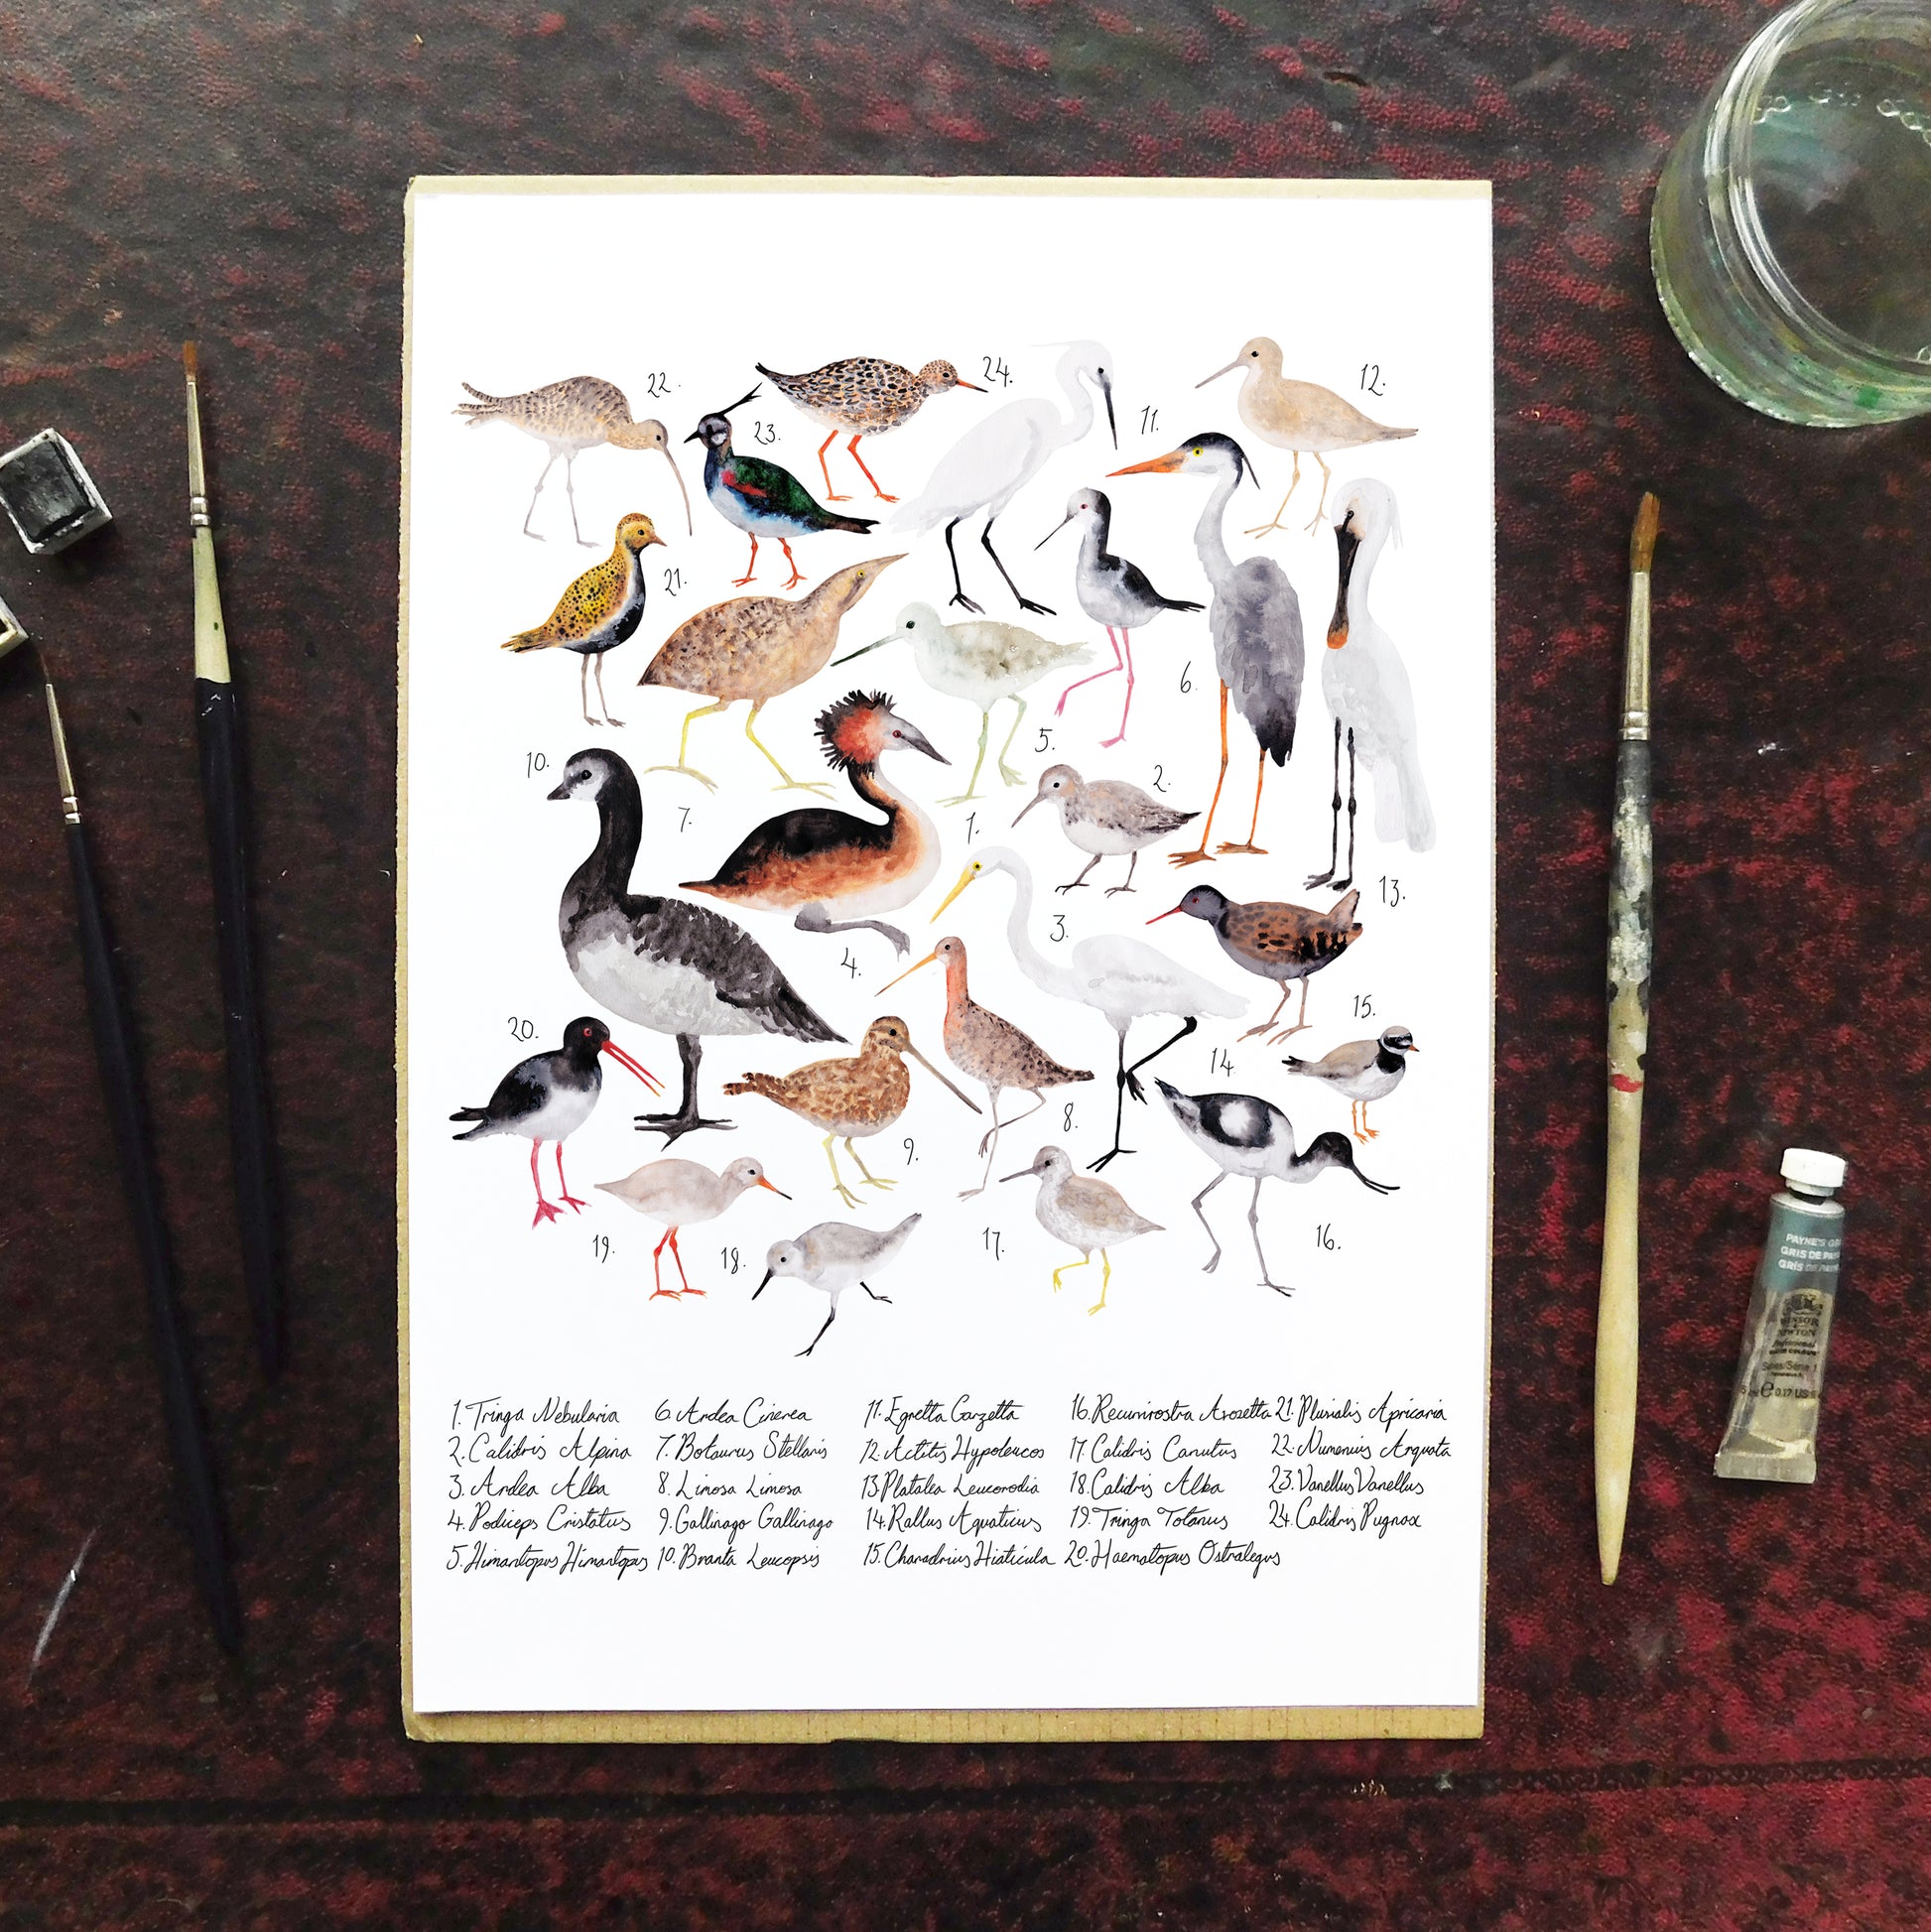 22.
24.
12.
23.
11.
21.
6.
5.
10.
2.
7.
1.
13.
3.
4.
15.
20.
14.
8.
9.
19.
18.
17.
16.
1. Tringa Nebularia
2. Calidris Alpina
3. Ardea Alba
4. Podiceps Cristatus
5. Himantopus Himantopus
6. Ardea Cinerea
7. Botaurus Stellaris
8. Limosa Limosa
9. Gallinago Gallinago
10. Branta Leucopsis
11. Egretta Garzetta
12. Actitis Hypoleucos
13. Platalea Leucorodia
14. Rallus Aquaticus
15. Charadrius Hiaticula
16. Recurvirostra Avosetta
17. Calidris Canutus
18. Calidris Alba
19. Tringa Totanus
20. Haematopus Ostralegus
21. Pluvialis Apricaria
22. Numenius Arquata
23. Vanellus Vanellus
24. Calidris Pugnax
PAYNE'S
GRIS DE
GRIS DE
WINSOR
NEWTON
Series/Série 1
0.17 US